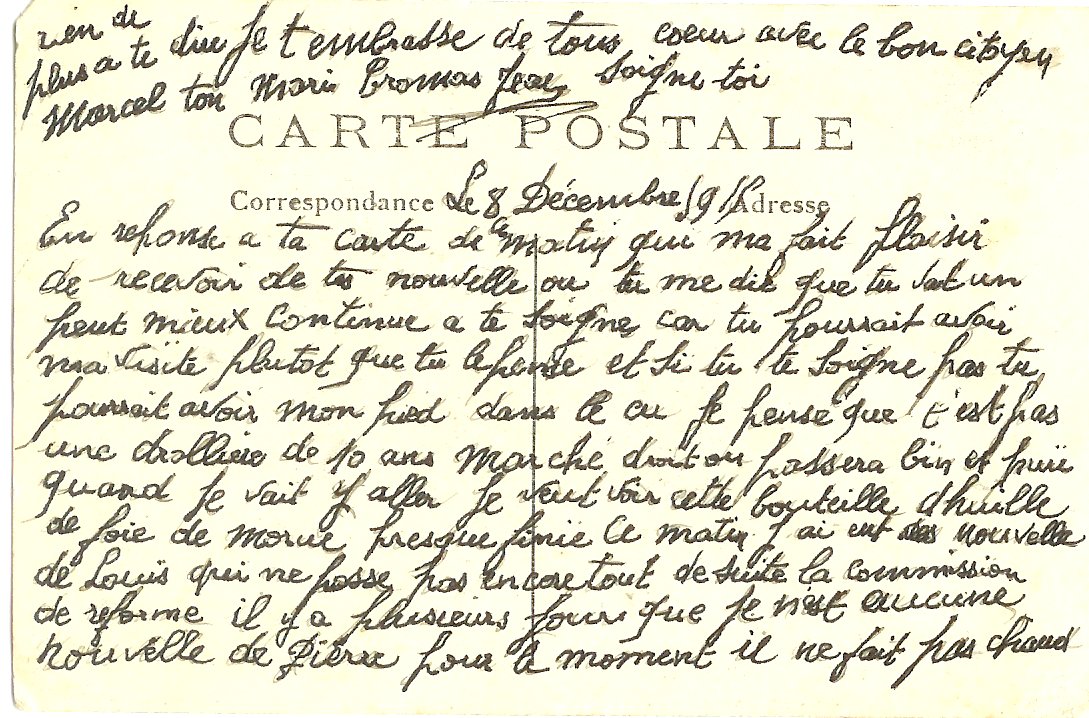 rien de
plus a te dire Je t embrasse de tous coeur avec le bon citoyen
Marcel ton Mari Tromas Jean Soigne toi
CARTE POSTALE
Correspondance Le 8 Décembre 191 Adresse
En reponse a ta carte de ce matin qui ma fait plaisir
de recevoir de tes nouvelle ou tu me dit que tu vat un
peut mieux continue a te soigne car tu pourrait avoir
ma visite plutot que tu le pense et si tu te soigne pas tu
pourrait avoir mon pied dans le cu Je pense que t'est pas
une drolliere de 10 ans Marche droit ou passera bin et puis
quand Je vait y aller Je veut voir cette bouteille d'huille
de foie de morue presque finie Ce matin J'ai eut des nouvelle
de Louis qui ne passe pas encore tout de suite la commission
de reforme il y a plusieurs Jour que Je n'est aucune
nouvelle de Pierre pour le moment il ne fait pas chaud